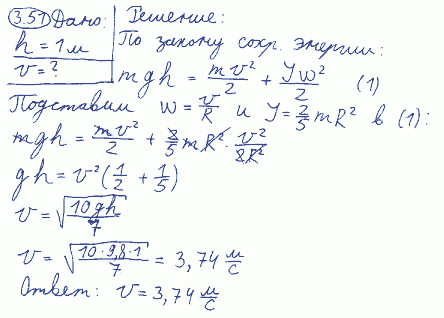 3.51 Дано: Решение:
h = 1 м
v = ?
По закону сохр. энергии:
mgh = mv²/2 + Jω²/2 (1)
Подставим ω = v/R и J = 2/5 mR² в (1):
mgh = mv²/2 + 2/5 mR² · v²/2R²
gh = v² (1/2 + 1/5)
v = √(10gh/7)
v = √(10·9,8·1/7) = 3,74 м/с
Ответ: v = 3,74 м/с